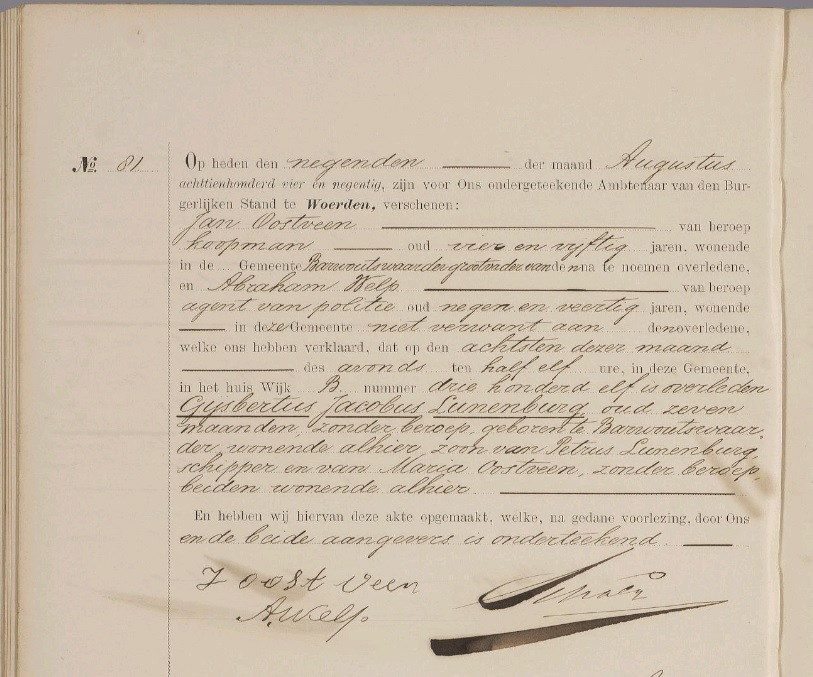 No 81 Op heden den negenden der maand Augustus
achttienhonderd vier en negentig, zijn voor Ons ondergeteekende Ambtenaar van den Bur-
gerlijken Stand te Woerden, verschenen:
Jan Oostveen van beroep
koopman oud vier en vijftig jaren, wonende
in de Gemeente Barwoutswaarder grootvader van den na te noemen overledene,
en Abraham Welp van beroep
agent van politie oud negen en veertig jaren, wonende
in deze Gemeente niet verwant aan den overledene,
welke ons hebben verklaard, dat op den achtsten dezer maand
des avonds ten half elf ure, in deze Gemeente,
in het huis Wijk B nummer drie honderd elf is overleden
Gijsbertus Jacobus Lunenburg oud zeven
maanden, zonder beroep, geboren te Barwoutswaar-
der, wonende alhier, zoon van Petrus Lunenburg,
schipper en van Maria Oostveen, zonder beroep,
beiden wonende alhier.
En hebben wij hiervan deze akte opgemaakt, welke, na gedane voorlezing, door Ons
en de beide aangevers is onderteekend
J Oostveen
A. Welp